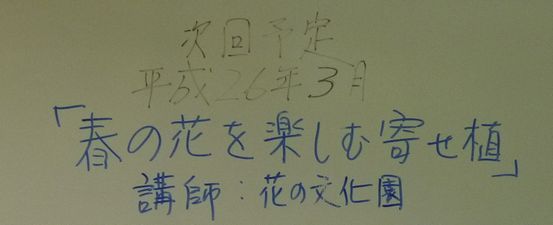 次回予定
平成26年3月
「春の花を楽しむ寄せ植」
講師：花の文化園